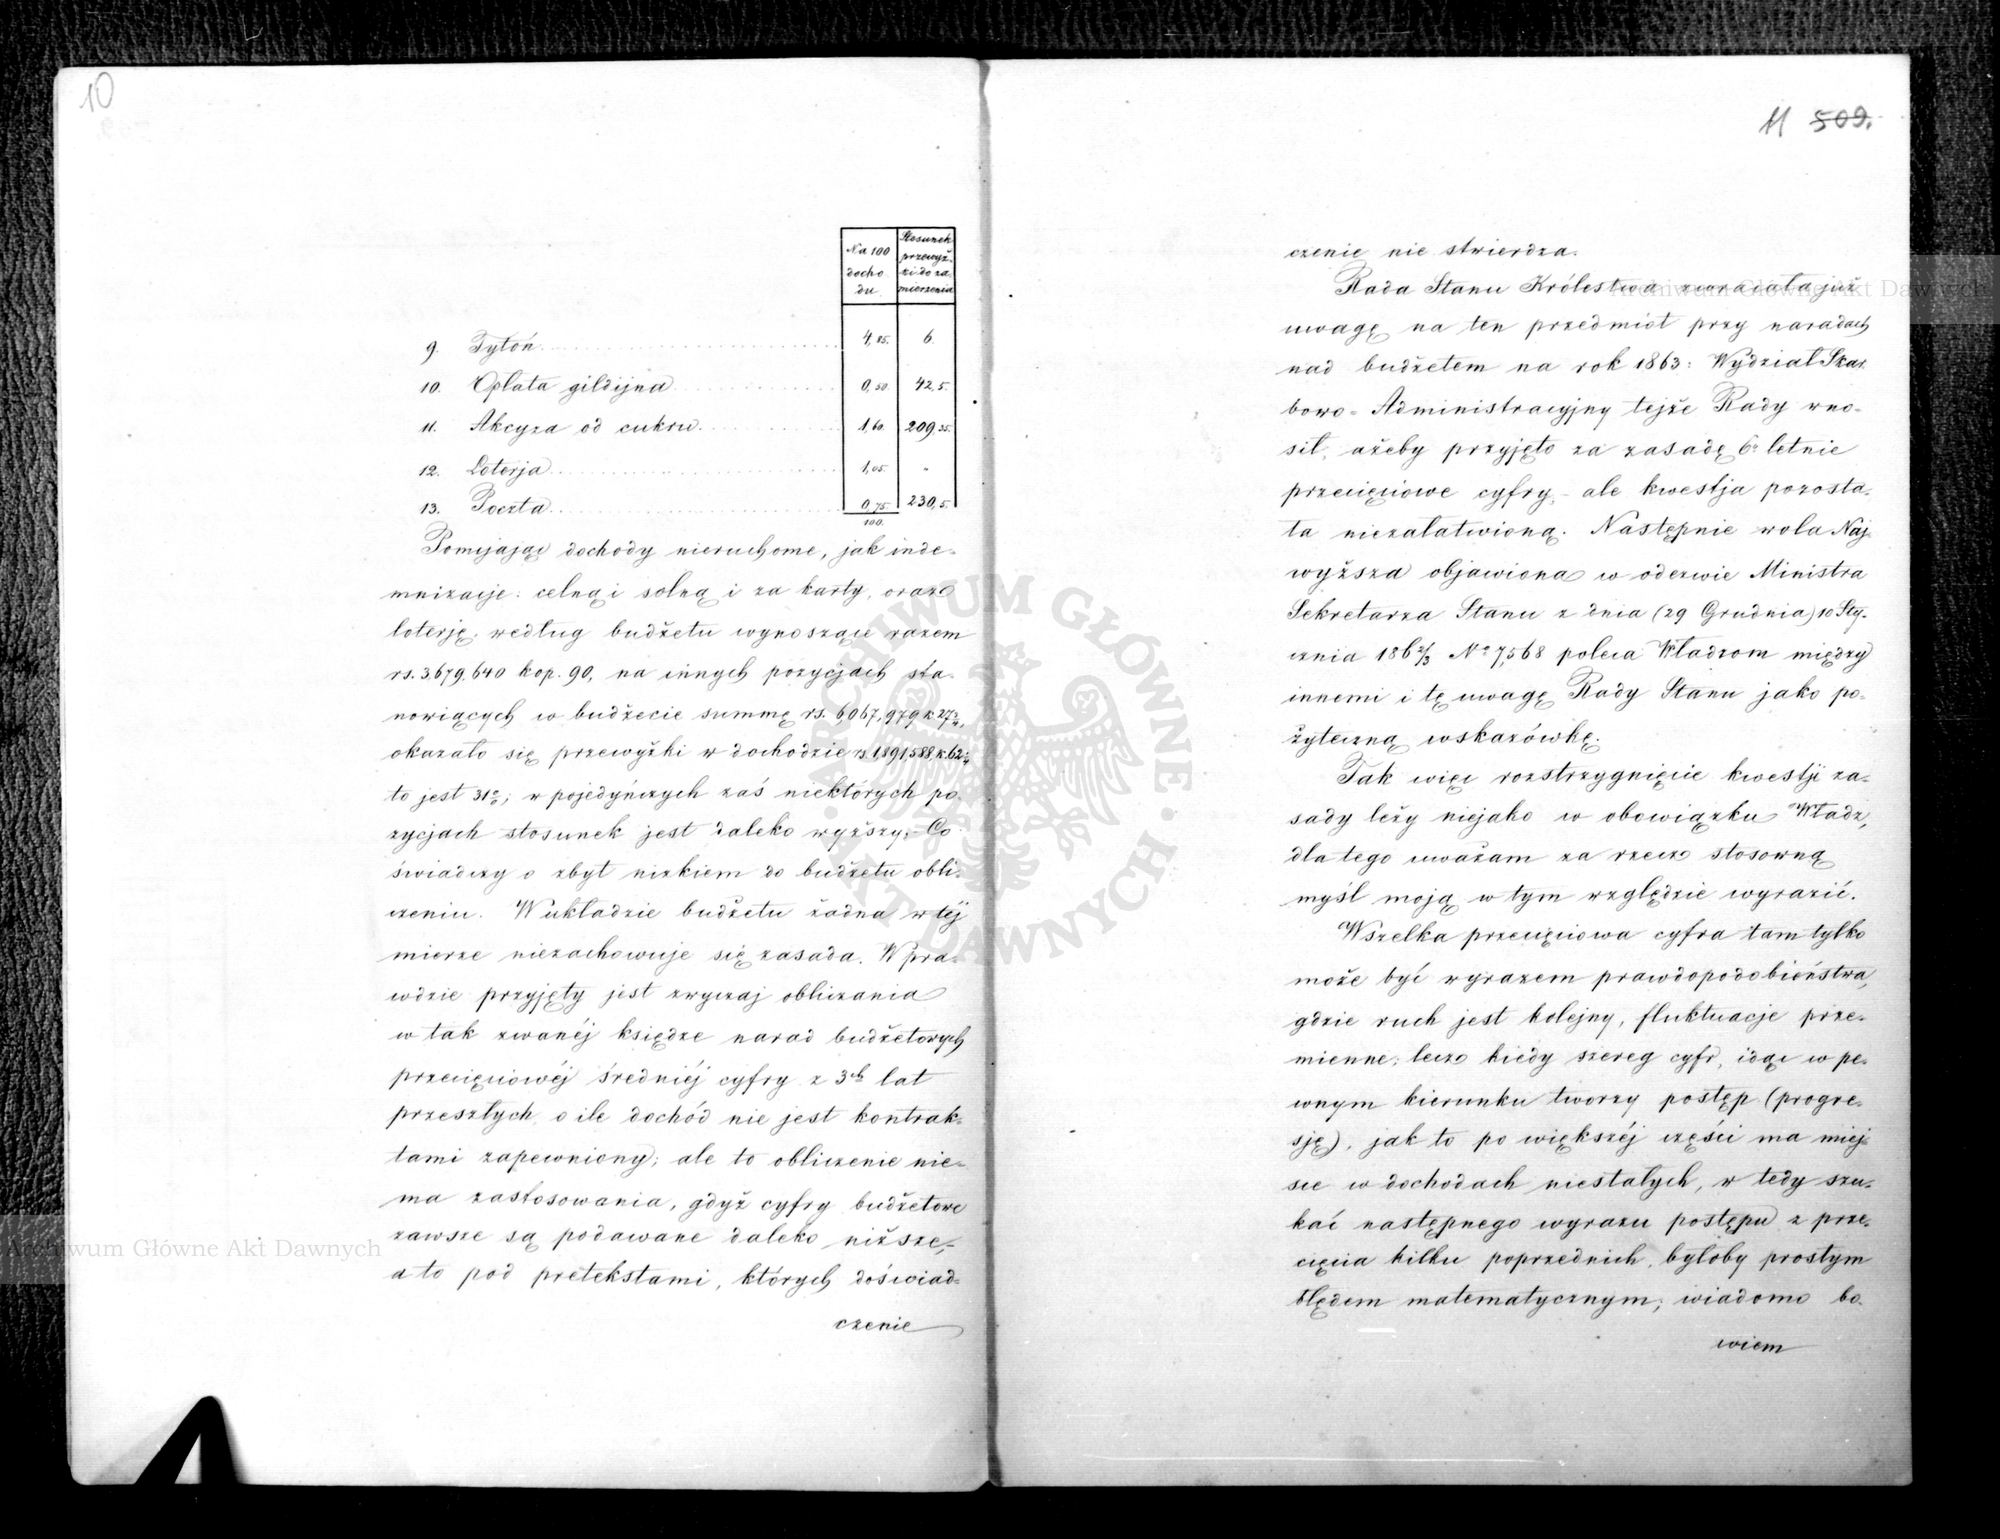 10
Na 100 docho du
Stosunek przewyż- ki do za mierzenia
9. Tytoń 4,85. 6.
10. Opłata gildijna 0,50. 42,5.
11. Akcyza od cukru 1,60. 209,35.
12. Loterja 1,05. "
13. Poczta 0,75. 230,5.
100.
Pomijając dochody nieruchome, jak inde-
mnizacje: celną i solną i za karty, oraz
loterję, według budżetu wynoszące razem
rs. 3,679,640 kop. 90, na innych pozycjach sta-
nowiących w budżecie summę rs. 6,067,979 k 27
okazało się przewyżki w dochodzie rs 1,891,588 k. 62
to jest 31%; w pojedyńczych zaś niektórych po-
zycjach stosunek jest daleko wyższy. – Co
świadczy o zbyt nizkiem do budżetu obli-
czeniu. W układzie budżetu żadna w téj
mierze niezachowuje się zasada. W pra-
wdzie przyjęty jest zwyczaj obliczania
w tak zwanéj księdze narad budżetowych
przecięciowéj średniéj cyfry z 3ch lat
przeszłych, o ile dochód nie jest kontrak-
tami zapewniony; ale to obliczenie nie-
ma zastosowania, gdyż cyfry budżetowe
zawsze są podawane daleko niższe,
a to pod pretekstami, których doświad-
czenie
11 509.
czenie nie stwierdza.
Rada Stanu Królestwa zwracała już
uwagę na ten przedmiot przy naradach
nad budżetem na rok 1863: Wydział Skar-
bowo-Administracyjny tejże Rady wno-
sił, ażeby przyjęto za zasadę 6o letnie
przecięciowe cyfry, – ale kwestja pozosta-
ła niezałatwioną. Następnie wola Naj-
wyższa objawiona w odezwie Ministra
Sekretarza Stanu z dnia (29 Grudnia) 10 Sty-
cznia 1862/3 No 7,568 poleca Władzom między
innemi i tę uwagę Rady Stanu jako po-
żyteczną wskazówkę.
Tak więc rozstrzygnięcie kwestji za-
sady leży niejako w obowiązku Władz,
dla tego uważam za rzecz stosowną
myśl moją w tym względzie wyrazić.
Wszelka przecięciowa cyfra tam tylko
może być wyrazem prawdopodobieństwa,
gdzie ruch jest kolejny, fluktuacje prze-
mienne; lecz kiedy szereg cyfr, idąc w pe-
wnym kierunku tworzy postęp (progre-
sję), jak to po większéj części ma miej-
sce w dochodach niestałych, w tedy szu-
kać następnego wyrazu postępu z prze-
cięcia kilku poprzednich, byłoby prostym
błędem matematycznym; wiadomo bo-
wiem
Archiwum Główne Akt Dawnych
ARCHIWUM GŁÓWNE AKT DAWNYCH
Archiwum Główne Akt Dawnych